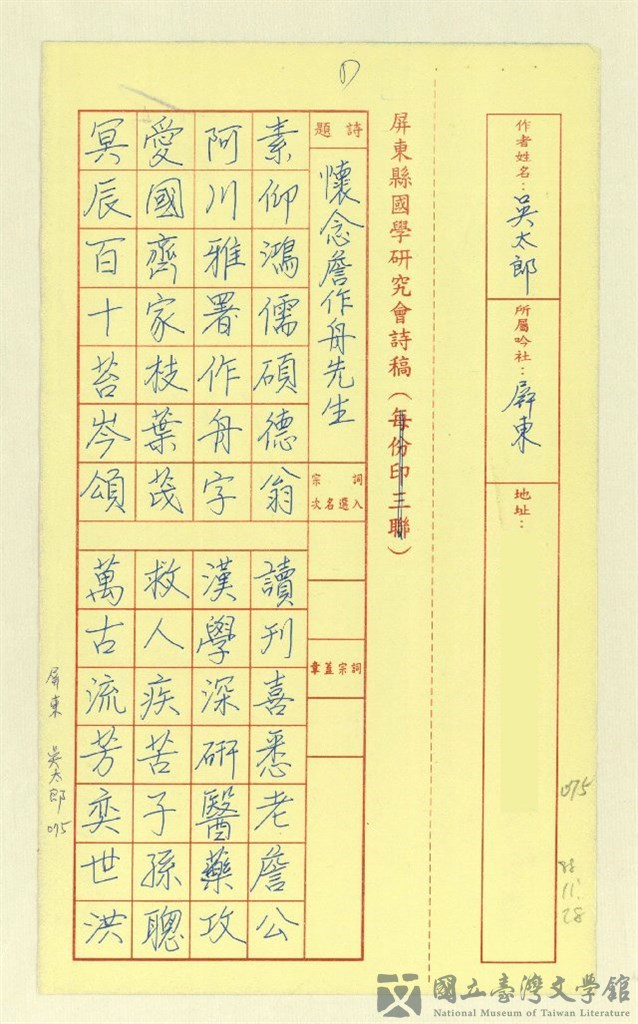 ①
作者姓名：吳太郎
所屬吟社：屏東
地址：
屏東縣國學研究會詩稿（每份印三聯）
詩題
懷念詹作舟先生
詞宗入選名次
詞宗蓋章
素仰鴻儒碩德翁
讀刊喜悉老詹公
阿川雅署作舟字
漢學深研醫藥攻
愛國齊家枝葉茂
救人疾苦子孫聰
冥辰百十苔岑頌
萬古流芳奕世洪
屏東 吳太郎 075
075
88 11. 28
國立臺灣文學館
National Museum of Taiwan Literature